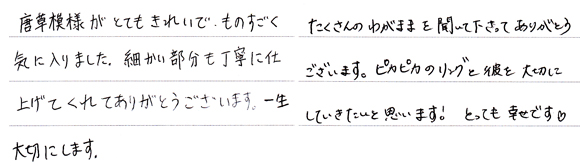 唐草模様がとてもきれいで、ものすごく
気に入りました。細かい部分も丁寧に仕
上げてくれてありがとうございます。一生
大切にします。
たくさんのわがままを聞いて下さってありがとう
ございます。ピカピカのリングと彼を大切に
していきたいと思います! とっても幸せです♡